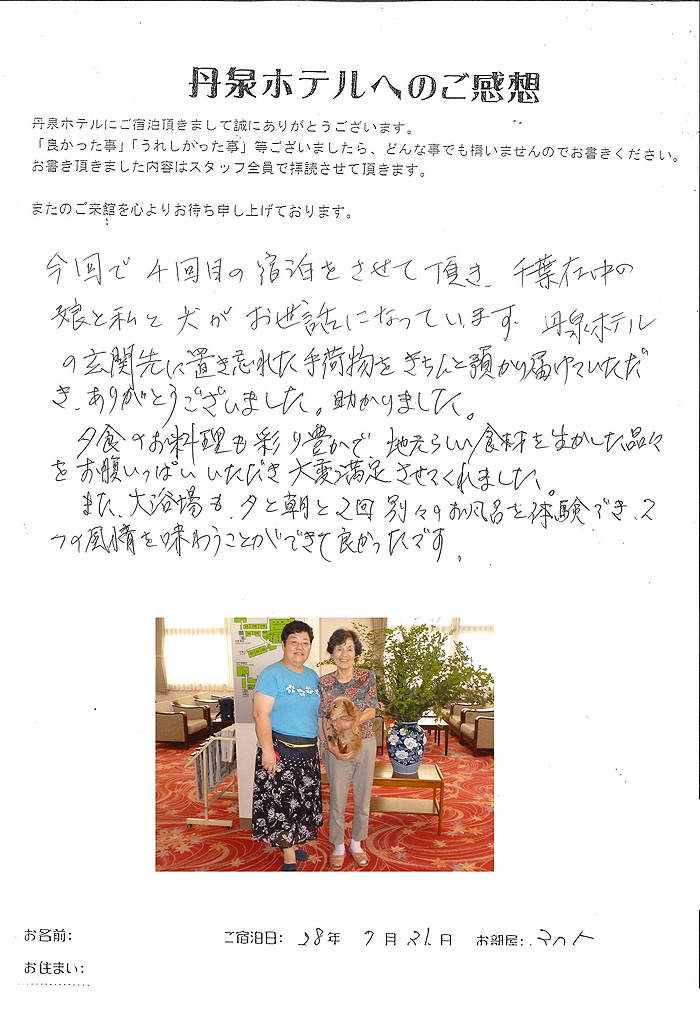 丹泉ホテルへのご感想
丹泉ホテルにご宿泊頂きまして誠にありがとうございます。
「良かった事」「うれしかった事」等ございましたら、どんな事でも構いませんのでお書きください。
お書き頂きました内容はスタッフ全員で拝読させて頂きます。
またのご来館を心よりお待ち申し上げております。
今回で4回目の宿泊をさせて頂き、千葉在中の
娘と私と犬がお世話になっています。丹泉ホテル
の玄関先に置き忘れた手荷物をきちんと預かり届けていただ
き、ありがとうございました。助かりました。
夕食のお料理も彩り豊かで地元らしい食材を生かした品々
をお腹いっぱいいただき大変満足させてくれました。
また、大浴場も、夕と朝と2回別々のお風呂を体験でき、2
つの風情を味わうことができて良かったです。
お名前:
ご宿泊日: 28年 7月 31日 お部屋:
お住まい: